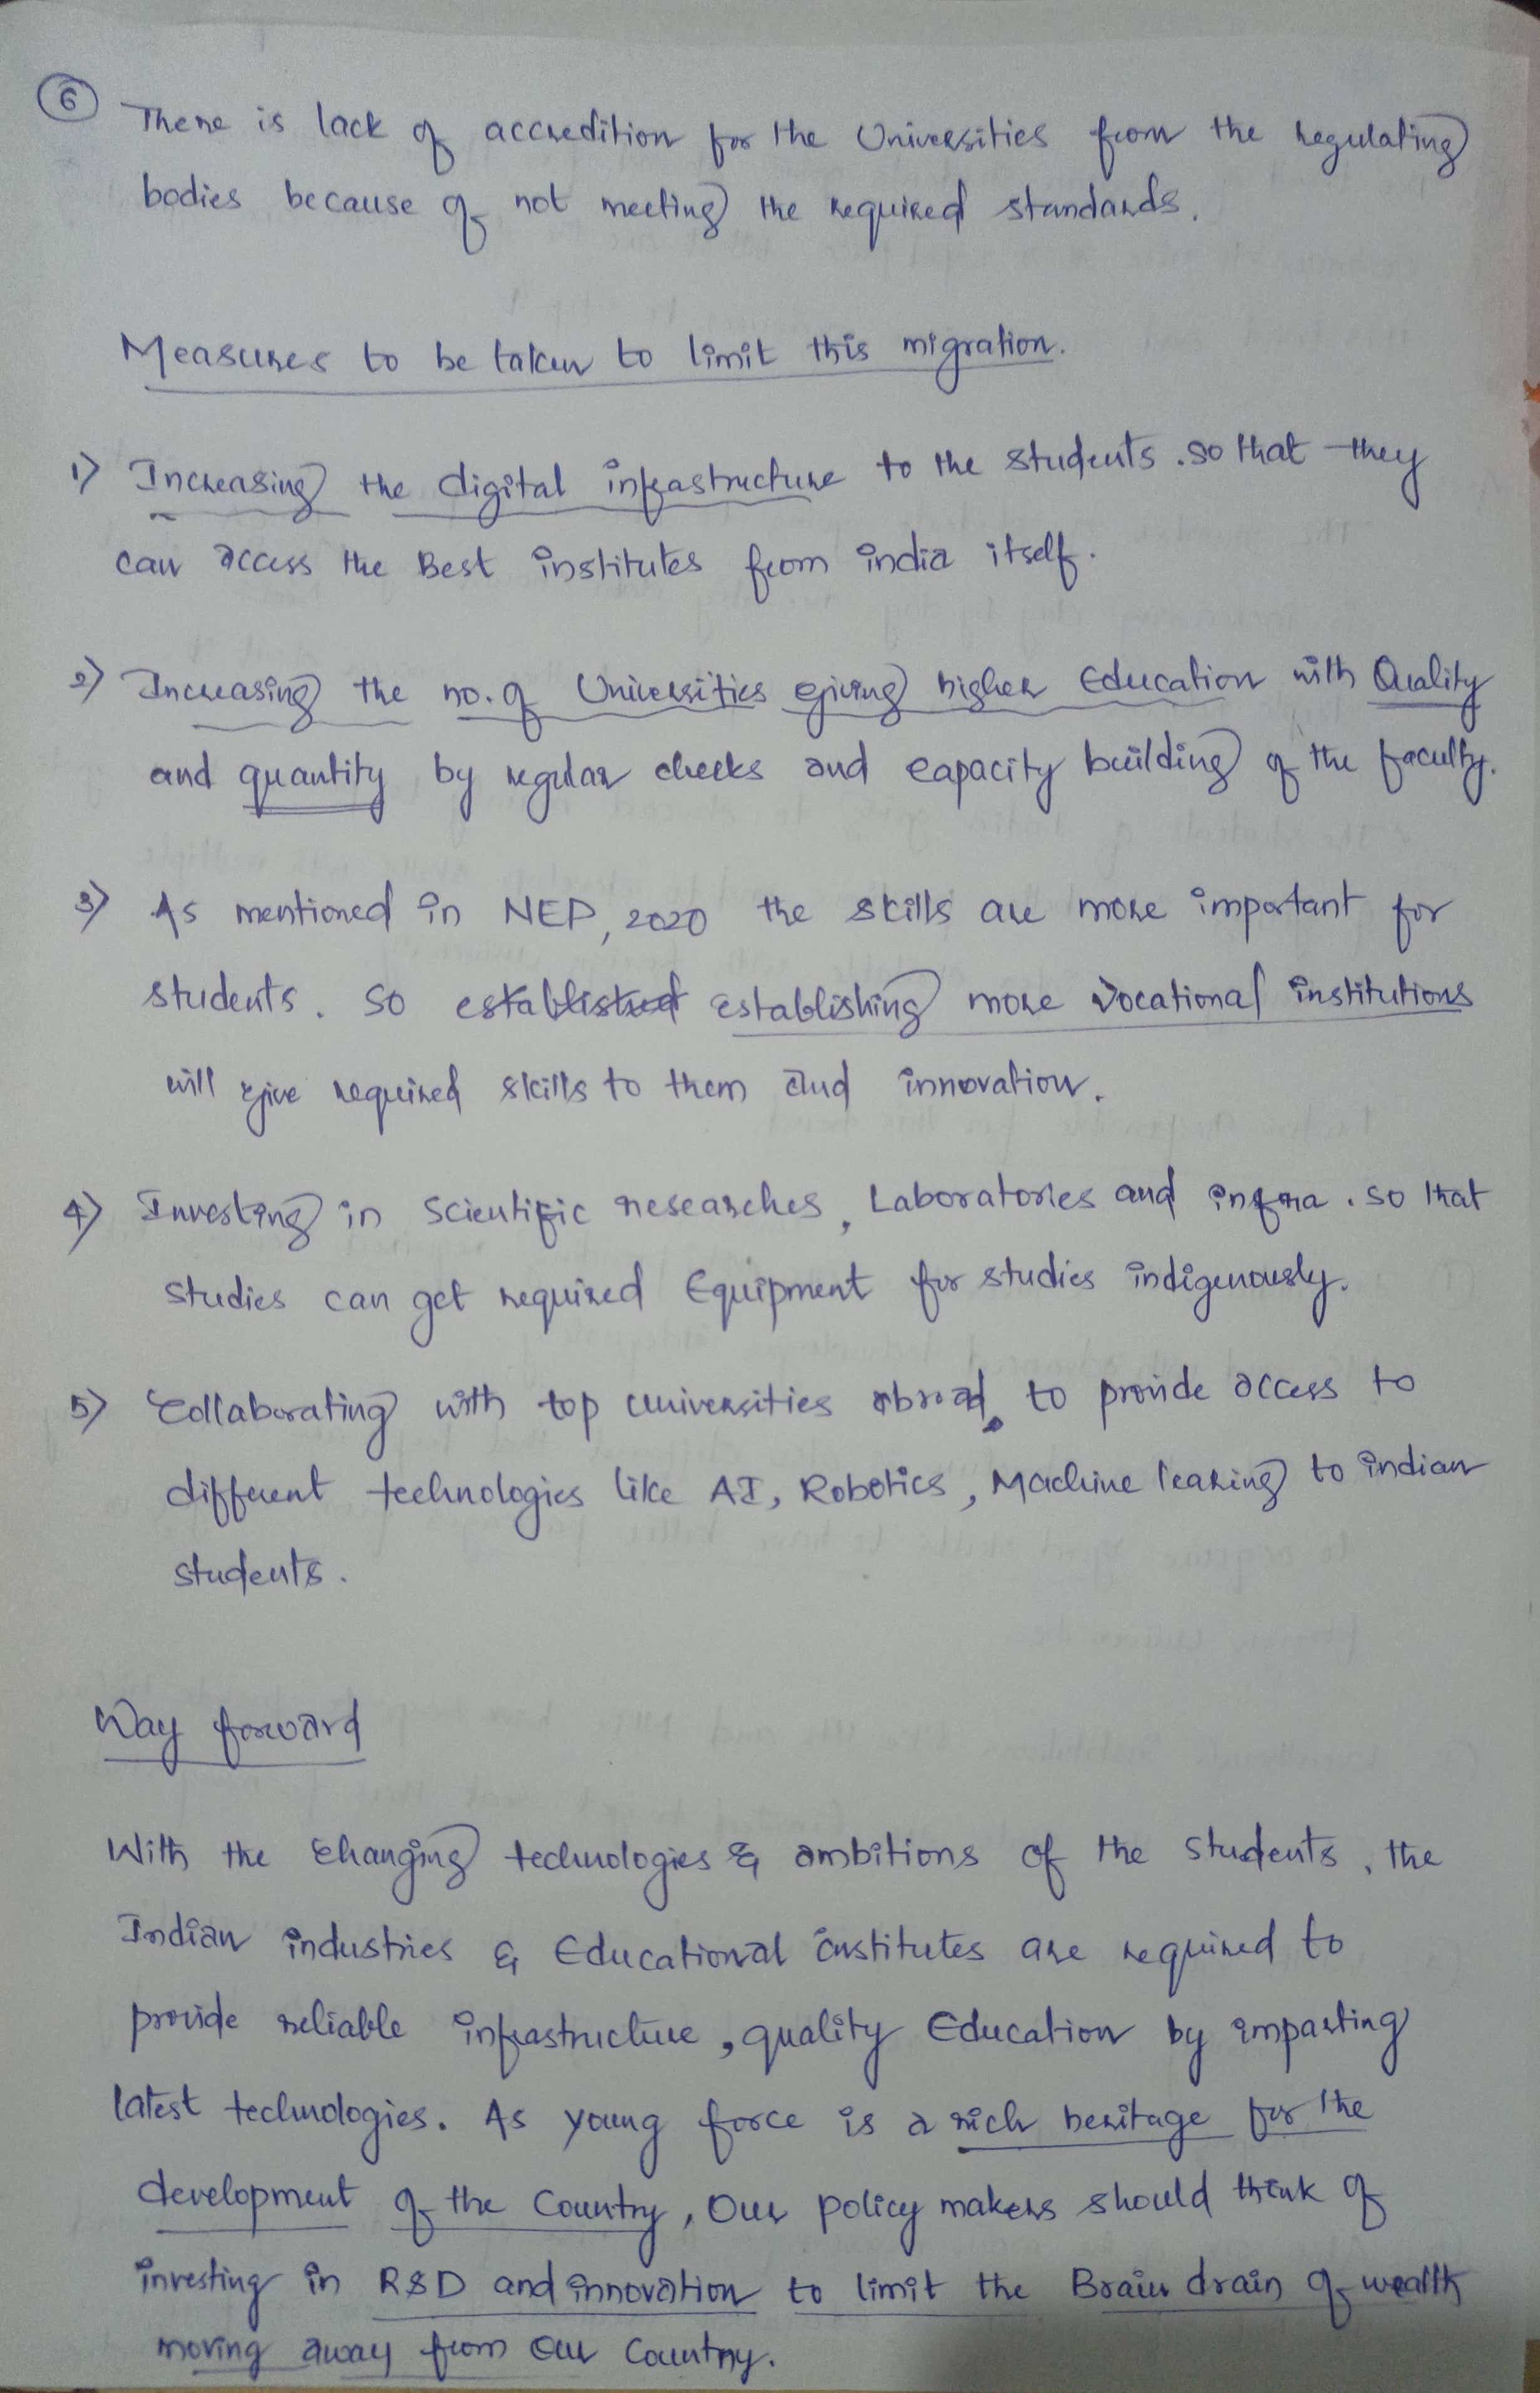 6 There is lack of accredition for the Universities from the regulating
bodies because of not meeting the required standards.
Measures to be taken to limit this migration.
1) Increasing the digital infrastructure to the students. so that they
can access the Best institutes from india itself.
2) Increasing the no. of Universities giving higher Education with Quality
and quantity by regular checks and capacity building of the faculty.
3) As mentioned in NEP, 2020 the skills are more important for
students. So established establishing more vocational institutions
will give required skills to them and innovation.
4) Investing in scientific researches, Laboratories and infra. so that
studies can get required Equipment for studies indigenously.
5) Collaborating with top universities abroad. to provide access to
different technologies like AI, Robotics, Machine learing to indian
students.
Way forward
With the changing technologies & ambitions of the students, the
Indian industries & Educational institutes are required to
provide reliable infrastructure, quality Education by imparting
latest technologies. As young force is a rich heritage for the
development of the Country, Our policy makers should think of
investing in R&D and innovation to limit the Brain drain of wealth
moving away from our Country.